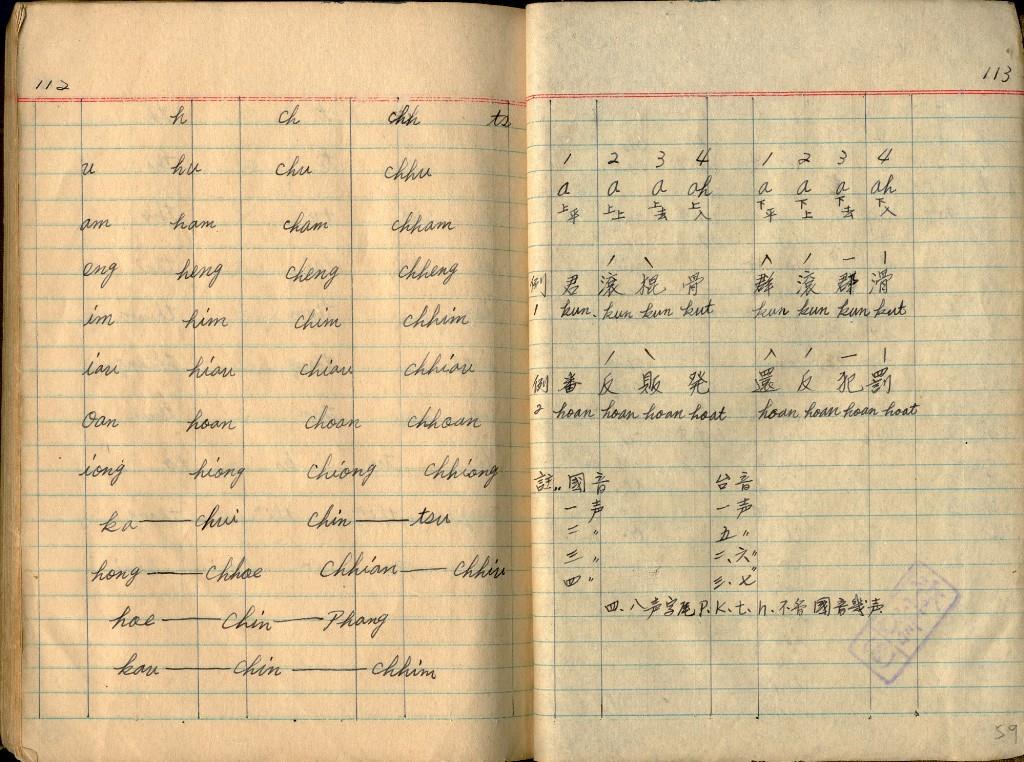 112
h ch chh ts
u hu chu chhu
am ham cham chham
eng heng cheng chheng
im him chim chhim
iau hiau chiau chhiau
oan hoan choan chhoan
iong hiong chiong chhiong
ka — chui chin — tsu
hong — chhoe chhian — chhiu
hoe — chin — Phang
kau — chin — chhim
113
1 2 3 4 1 2 3 4
a a a ah a a a ah
上平 上上 上去 上入 下平 下上 下去 下入
例 君 滾 棍 骨 群 滾 郡 滑
1 kun. kun kun kut kun kun kun kut
例 番 反 販 発 還 反 犯 罰
2 hoan hoan hoan hoat hoan hoan hoan hoat
註.. 國音 台音
一声 一声
二〃 五〃
三〃 二、六〃
四〃 三、七〃
四、八声字尾P.K.t.h.不管國音幾声
59